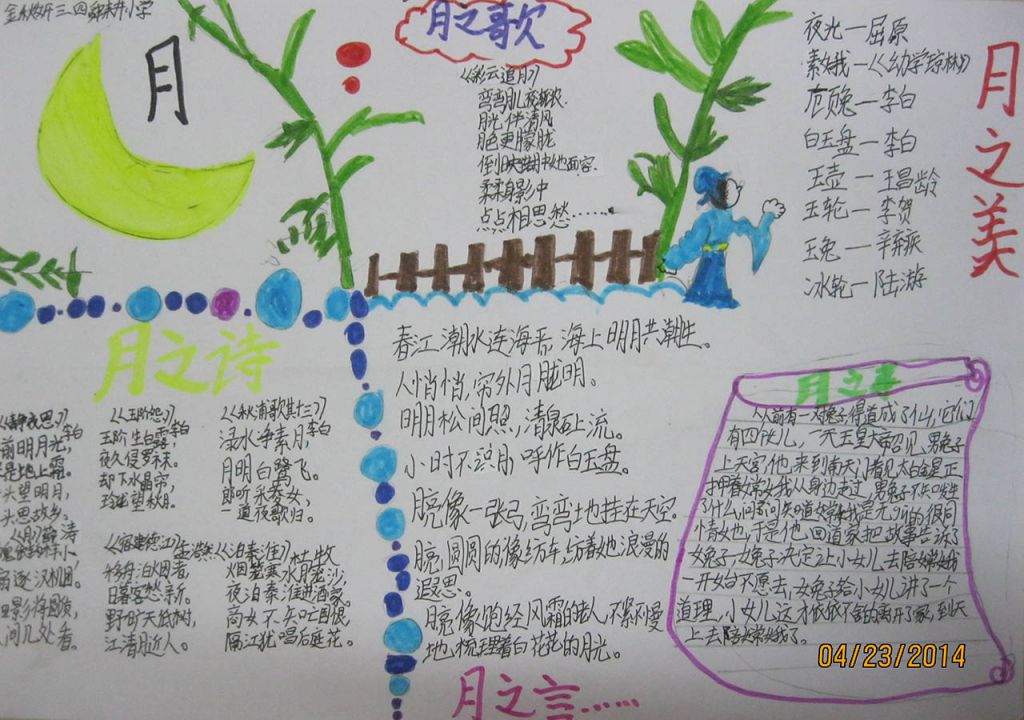 月
月之歌
《彩云追月》
弯弯月儿夜渐浓
月光伴清风
月色更朦胧
倒映湖中她面容
柔柔身影中
点点相思愁……
夜光—屈原
素娥—《幼学琼林》
顾兔—李白
白玉盘—李白
玉壶—王昌龄
玉轮—李贺
玉兔—辛弃疾
冰轮—陆游
月之美
月之诗
《静夜思》李白
前明月光,
是地上霜。
头望明月,
头思故乡。
《月》薛涛
《玉阶怨》李白
玉阶生白露,
夜久侵罗袜。
却下水晶帘,
玲珑望秋月。
《秋浦歌其十三》李白
渌水净素月,
月明白鹭飞。
郎听采菱女,
一道夜歌归。
《宿建德江》孟浩然
移舟泊烟渚,
日暮客愁新。
野旷天低树,
江清月近人。
《泊秦淮》杜牧
烟笼寒水月笼沙,
夜泊秦淮近酒家。
商女不知亡国恨,
隔江犹唱后庭花。
春江潮水连海平,海上明月共潮生。
人悄悄,帘外月胧明。
明月松间照,清泉石上流。
小时不识月,呼作白玉盘。
月亮像一张弓,弯弯地挂在天空。
月亮圆圆的像纺车,纺着她浪漫的
遐思。
月亮像饱经风霜的老人,不紧不慢
地梳理着白花花的月光。
月之言……
从前有一对兔子得道成了仙,它们
有四个女儿,一天玉皇大帝召见男兔子
上天宫,他来到南天门看见太白金星正
押着嫦娥从身边走过,男兔子不知发生
了什么问
情女也,于是他回道家把故事告诉了
女兔子,女兔子决定让小女儿去陪嫦娥
一开始不愿去,女兔子给小女儿讲了一个
道理,小女儿这才依依不舍的离开了家,到天
上去陪嫦娥了。
04/23/2014